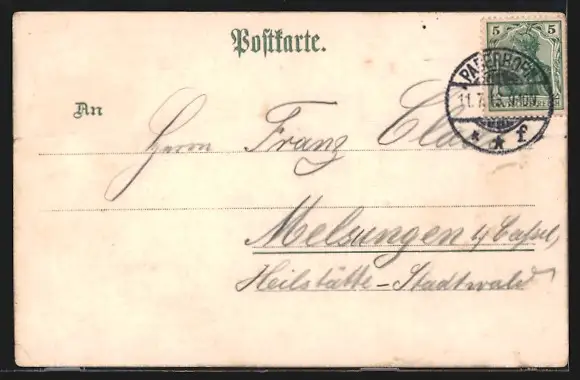 Postkarte.
5 5
PADERBORN
11.7.
* * f
An
Herrn Franz
Melsungen b/ Cassel,
Heilstätte-Stadtwald